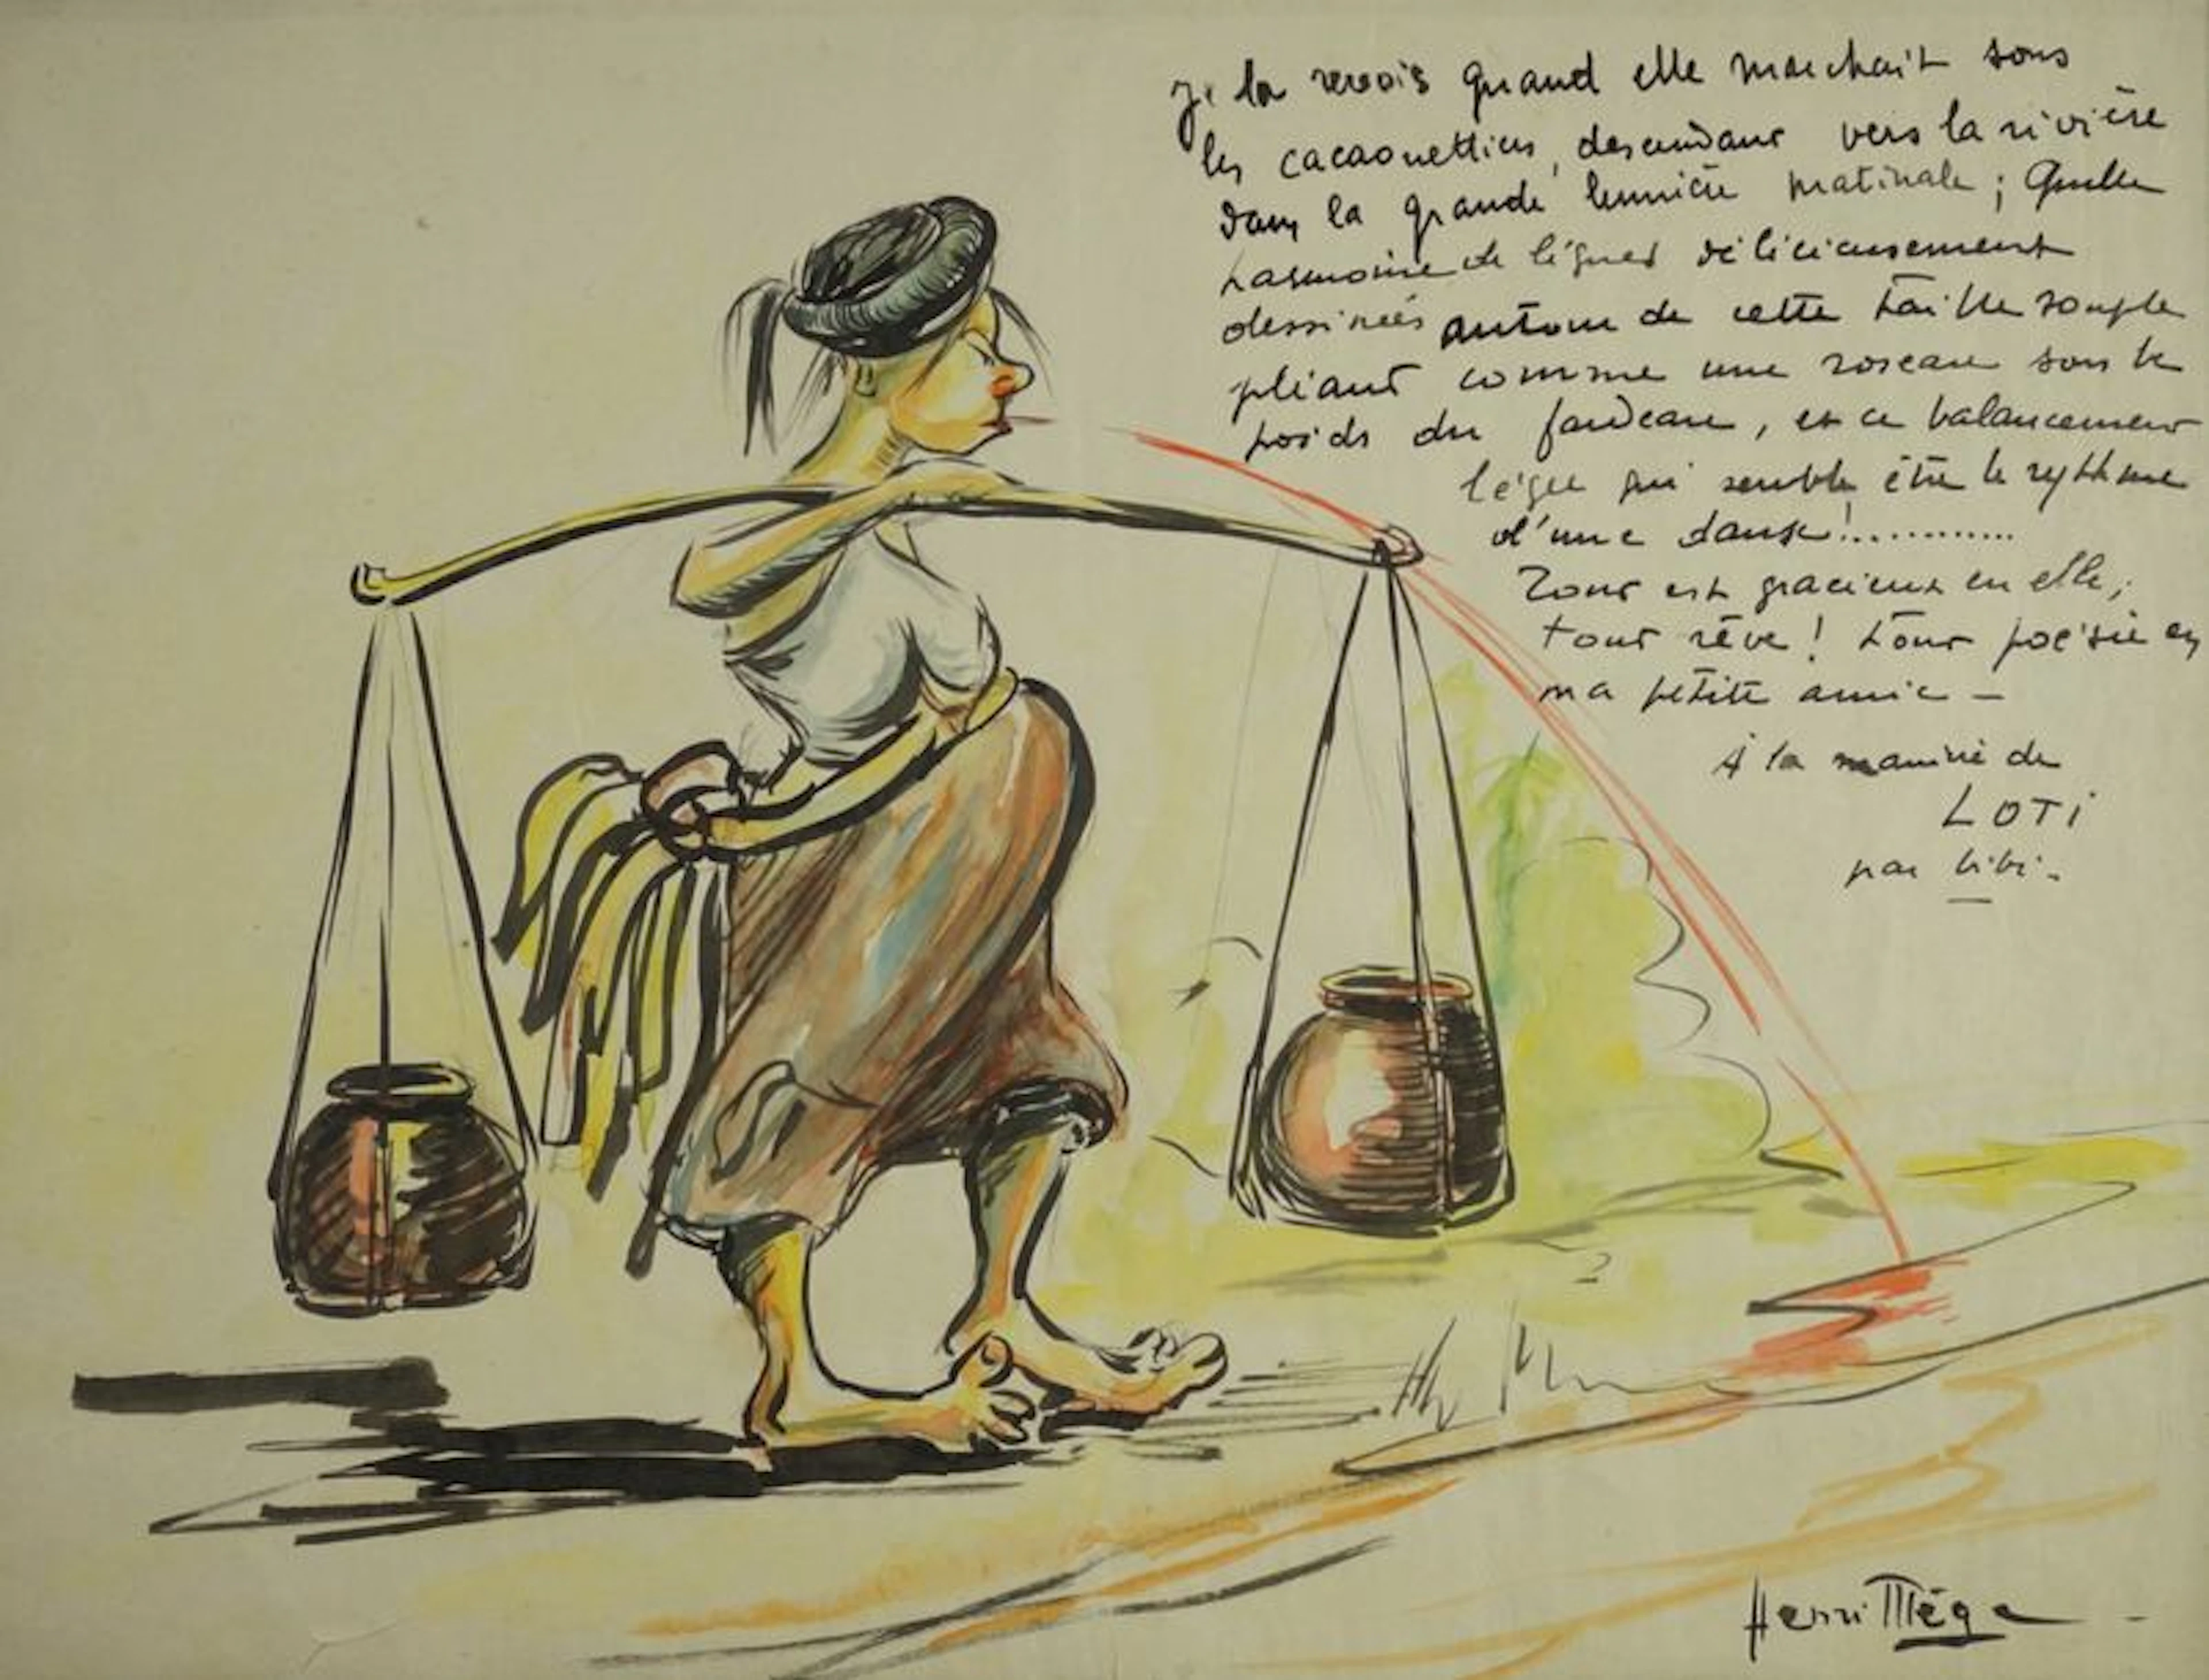 Je la revois quand elle marchait sous
les cacaouettiers, descendant vers la rivière
dans la grande lumière matinale ; Quelle
harmonie de lignes délicieusement
dessinées autour de cette taille souple
pliant comme une roseau sous le
poids du fardeau, et ce balancement
léger qui semble être le rythme
d'une danse !............
Tout est gracieux en elle ;
tout rêve ! tout poésie en
ma petite amie –
À la manière de
LOTI
par bibi -
Henri Mège